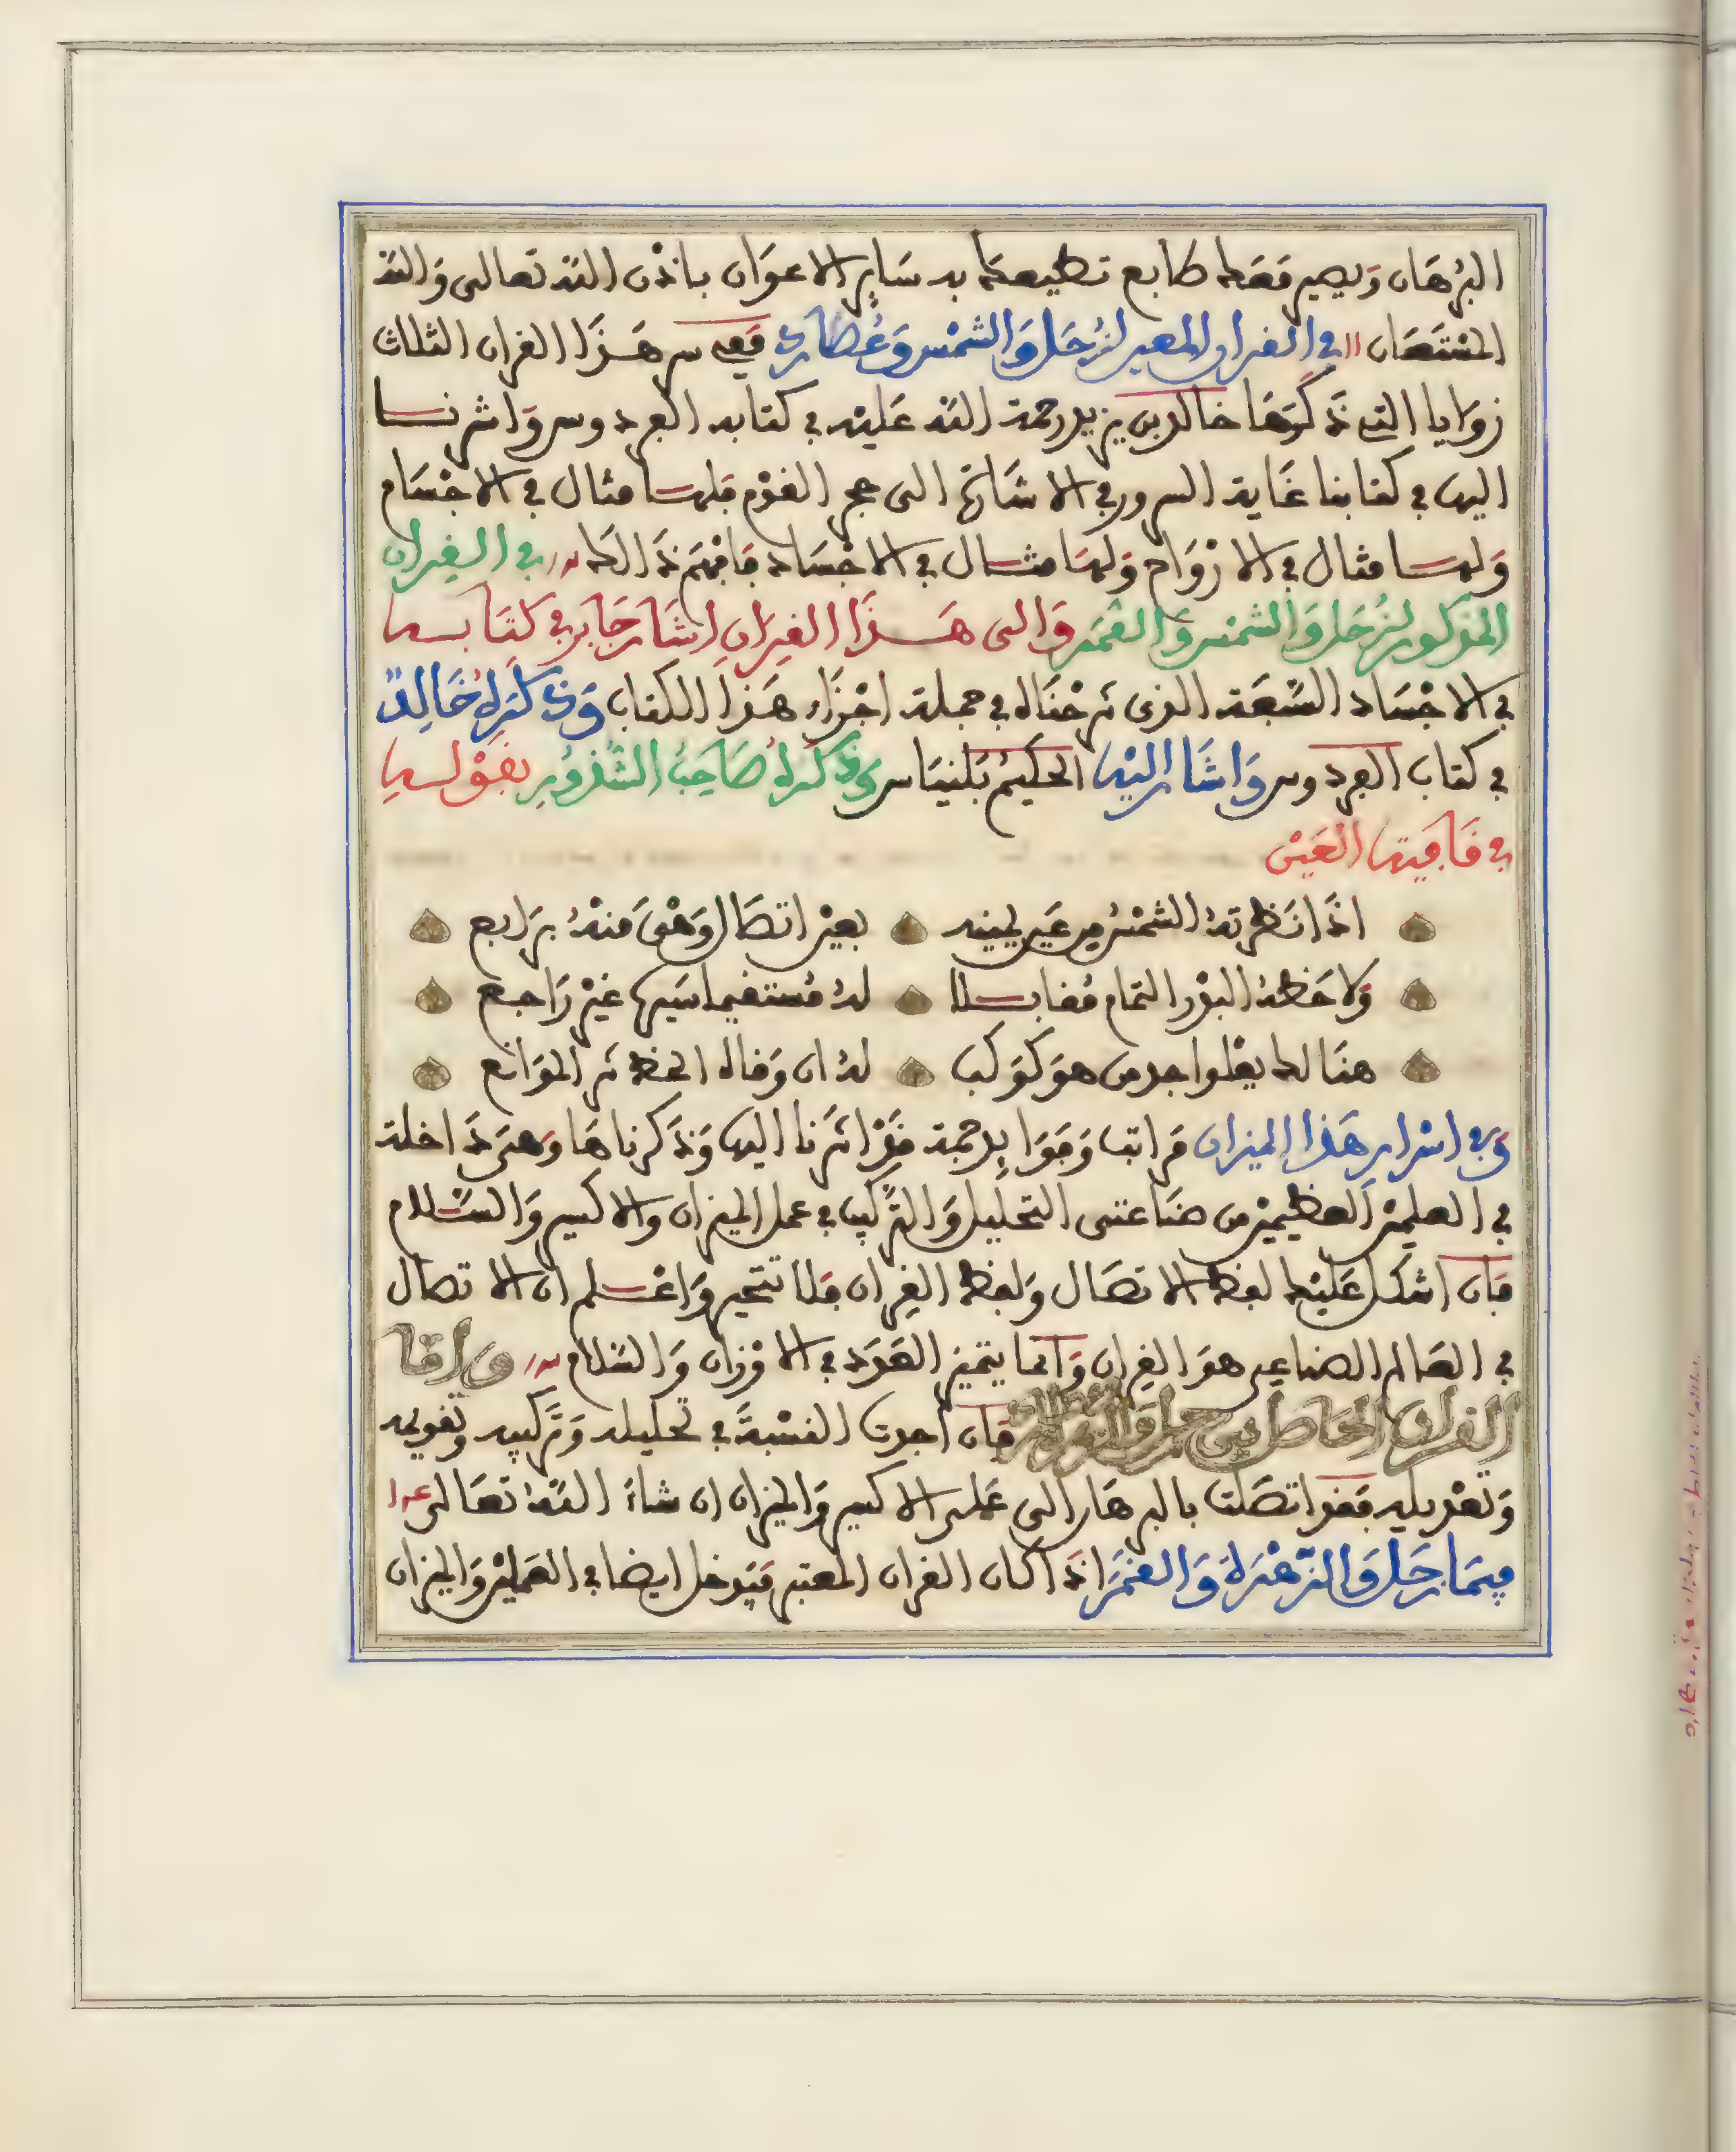 البرهان ويصير معك طابع تطيعك به ساير الاعوان باذن الله تعالى والله
المستعان في القران المعين لزحل والشمس وعطارد ففي سر هذا القران الثلاث
زوايا التي ذكرها خالد بن يزيد رحمة الله عليه في كتابه الفردوس واشرنا
اليها في كتابنا غاية السرور في الاشارة الى حجر القوم فلها مثال في الاجسام
ولها مثال في الارواح ولها مثال في الاجساد فافهم ذالك في القران
المذكور لزحل والشمس والقمر والى هذا القران اشار جابر في كتابه
في الاجساد السبعة الذي شرحناه في جملة اجزاء هذا الكتاب وذكره خالد
في كتاب الفردوس واشار اليه الحكيم بلنياس وذكره صاحب الشذور بقوله
في قافية العين
اذا نظرته الشمس من عين يمينه بعين اتصال وهي منه برابع
ولاحظه البدر التمام مقابلا له مستقيما سيره غير راجع
هنالك يعلوا جد من هو كوكب له ان وقاه الحظ شر الموانع
وفي اسرار هذا الميزان مراتب وفوايد جمة قد اشرنا اليها وذكرناها وهي داخلة
في العلمين العظيمين من صناعتي التحليل والتركيب في عمل الميزان والاكسير والسلام
فان اشكل عليك لفظ الاتصال ولفظ القران فلا تتحير واعلم ان الاتصال
في العالم الصناعي هو القران وانما يتميز العدد في الاوزان والسلام واما
القران الحاصل بين زحل والزهرة فان اجدت النسبة في تحليله وتركيبه وتقويمه
وتعديله فقد اتصلت بالبرهان الى عملي الاكسير والميزان ان شاء الله تعالى
فيما زحل والزهرة والقمر اذا كان القران المعتبر فيدخل ايضا في العملين والميزان